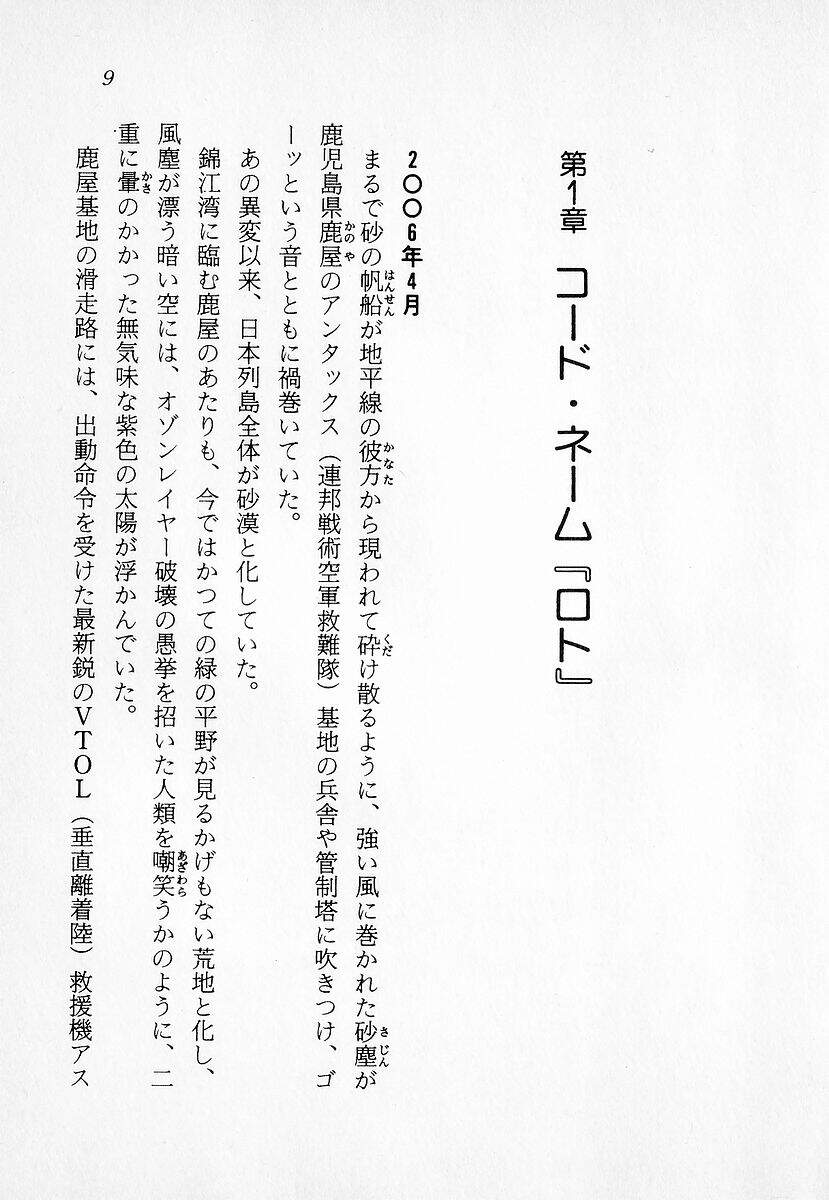 第1章　コード・ネーム『ロト』
2〇〇6年4月
まるで砂の帆船が地平線の彼方から現われて砕け散るように、強い風に巻かれた砂塵が
鹿児島県鹿屋のアンタックス（連邦戦術空軍救難隊）基地の兵舎や管制塔に吹きつけ、ゴ
ーッという音とともに禍巻いていた。
あの異変以来、日本列島全体が砂漠と化していた。
錦江湾に臨む鹿屋のあたりも、今ではかつての緑の平野が見るかげもない荒地と化し、
風塵が漂う暗い空には、オゾンレイヤー破壊の愚挙を招いた人類を嘲笑うかのように、二
重に暈のかかった無気味な紫色の太陽が浮かんでいた。
鹿屋基地の滑走路には、出動命令を受けた最新鋭のVTOL（垂直離着陸）救援機アス
9